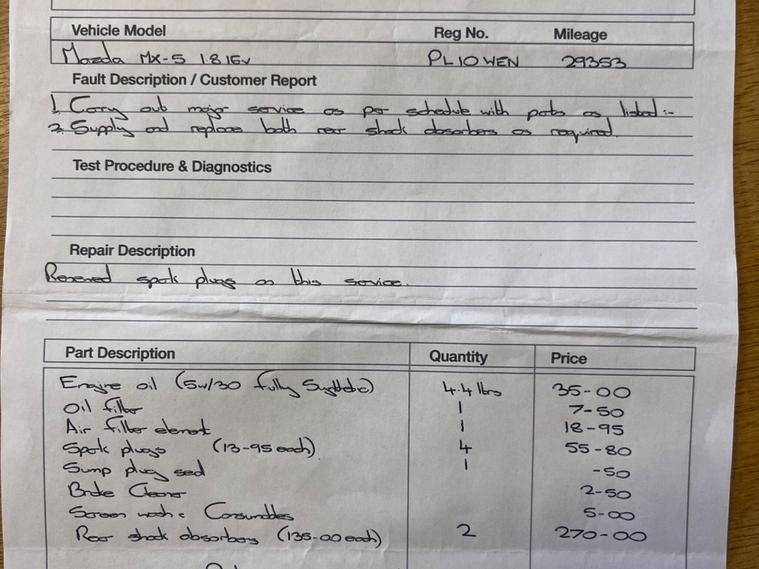 Vehicle Model Reg No. Mileage
Mazda MX-5 1.8 16v PL10 WEN 29353
Fault Description / Customer Report
1. Carry out major service as per schedule with parts as listed:-
2. Supply and replace both rear shock absorbers as required.
Test Procedure & Diagnostics
Repair Description
Renewed spark plugs on this service.
Part Description Quantity Price
Engine oil (5w/30 fully Synthetic) 4.4 ltrs 35-00
Oil filter 1 7-50
Air filter element 1 18-95
Spark plugs (13-95 each) 4 55-80
Sump plug seal 1 -50
Brake Cleaner 2-50
Screen wash & Consumables 5-00
Rear shock absorbers (135-00 each) 2 270-00